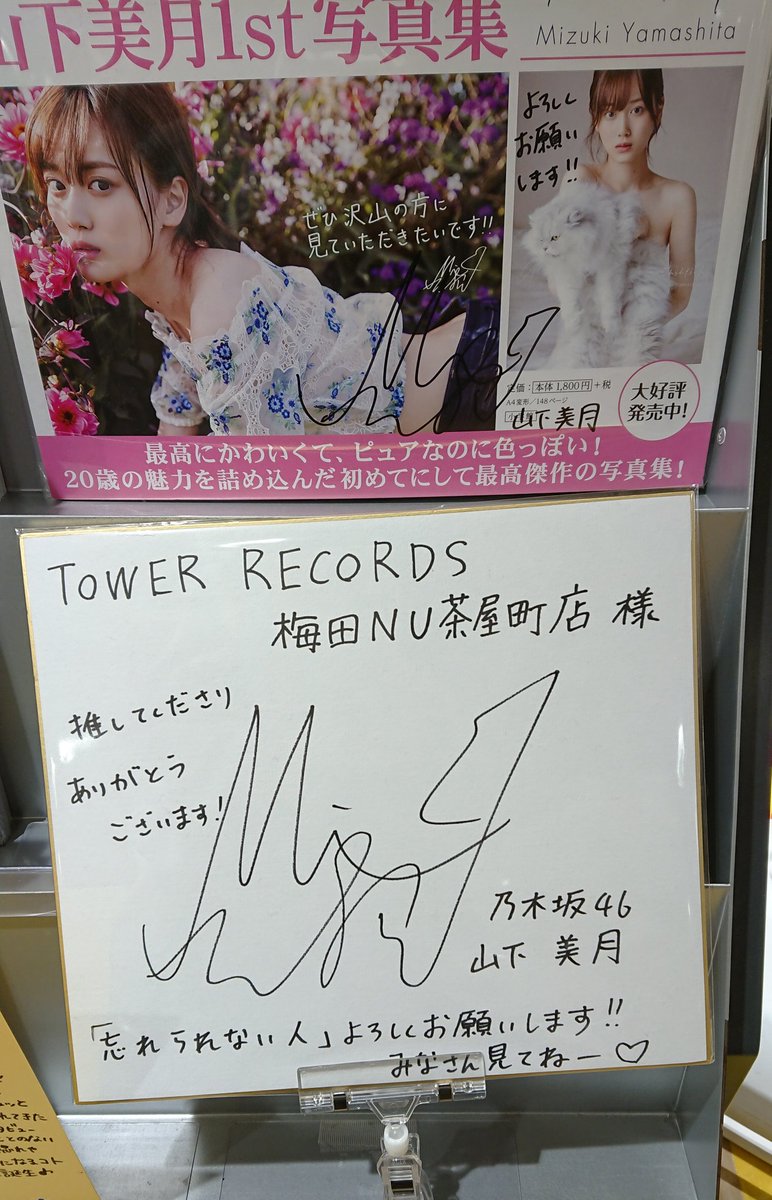 山下美月1st写真集
Mizuki Yamashita
よろしく
お願い
します!!
ぜひ沢山の方に
見ていただきたいです!!
定価:本体1,800円+税
A4変形/148ページ
山下美月
大好評
発売中!
最高にかわいくて、ピュアなのに色っぽい!
20歳の魅力を詰め込んだ初めてにして最高傑作の写真集!
TOWER RECORDS
梅田NU茶屋町店 様
推してくださり
ありがとう
ございます!
乃木坂46
山下 美月
「忘れられない人」よろしくお願いします!!
みなさん見てねー♡